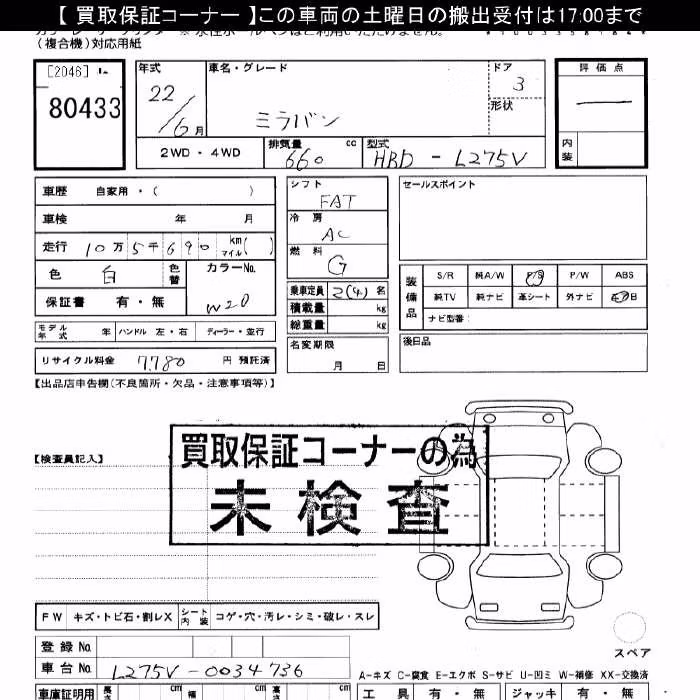 【 買取保証コーナー 】この車両の土曜日の搬出受付は17:00まで
(複合機)対応用紙
[2046]
80433
年式
22/6月
車名・グレード
ミラバン
ドア
3
形状
評価点
—
内装
2WD ・ 4WD
排気量
660 cc
型式
HBD - L275V
車歴 自家用・( )
車検 年 月
走行 10万5千690 km マイル( )
色 白 色替
カラーNo.
W20
保証書 有・無
モデル年式 年 ハンドル 左・右 ディーラー・並行
リサイクル料金 7,780 円 預託済
シフト
FAT
冷房
AC
燃料
G
乗車定員 2(4) 名
積載量 kg
総重量 kg
名変期限
月 日
セールスポイント
装備品
S/R 純A/W P/S P/W ABS
純TV 純ナビ 革シート 外ナビ
ナビ型番:
後日品
【出品店申告欄(不良箇所・欠品・注意事項等)】
【検査員記入】
買取保証コーナーの為
未検査
FW キズ・トビ石・割レX シート内装 コゲ・穴・汚レ・シミ・破レ・スレ
スペア
登録 No.
車台 No. L275V-0034736
A-キズ C-腐食 E-エクボ S-サビ U-凹ミ W-補修 XX-交換済
車庫証明用 長さ cm 幅 cm 高さ cm
工具 有・無 ジャッキ 有・無